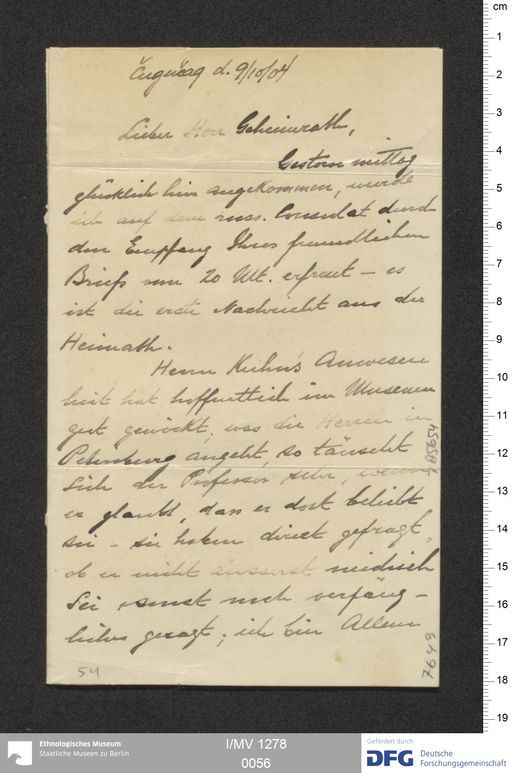 Čugučag d. 9/10/04
Lieber Herr Geheimrath,
Gestern mittag
glücklich hier angekommen, wurde
ich auf dem russ. Consulat durch
den Empfang Ihres freundlichen
Briefs vom 20 Ult. erfreut – es
ist die erste Nachricht aus der
Heimath.
Herrn Kuhn's Anwesen
heit hat hoffentlich im Museum
gut gewirkt, was die Herren in
Petersburg angeht, so täuscht
sich der Professor sehr, wenn
er glaubt, dass er dort beliebt
sei – sie haben direct gefragt,
ob er nicht äusserst neidisch
sei, sonst noch verfäng-
liches gesagt; ich bin Allem
1A5654
7648
54
cm
1
2
3
4
5
6
7
8
9
10
11
12
13
14
15
16
17
18
19
Ethnologisches Museum
Staatliche Museen zu Berlin
I/MV 1278
0056
Gefördert durch
DFG
Deutsche
Forschungsgemeinschaft